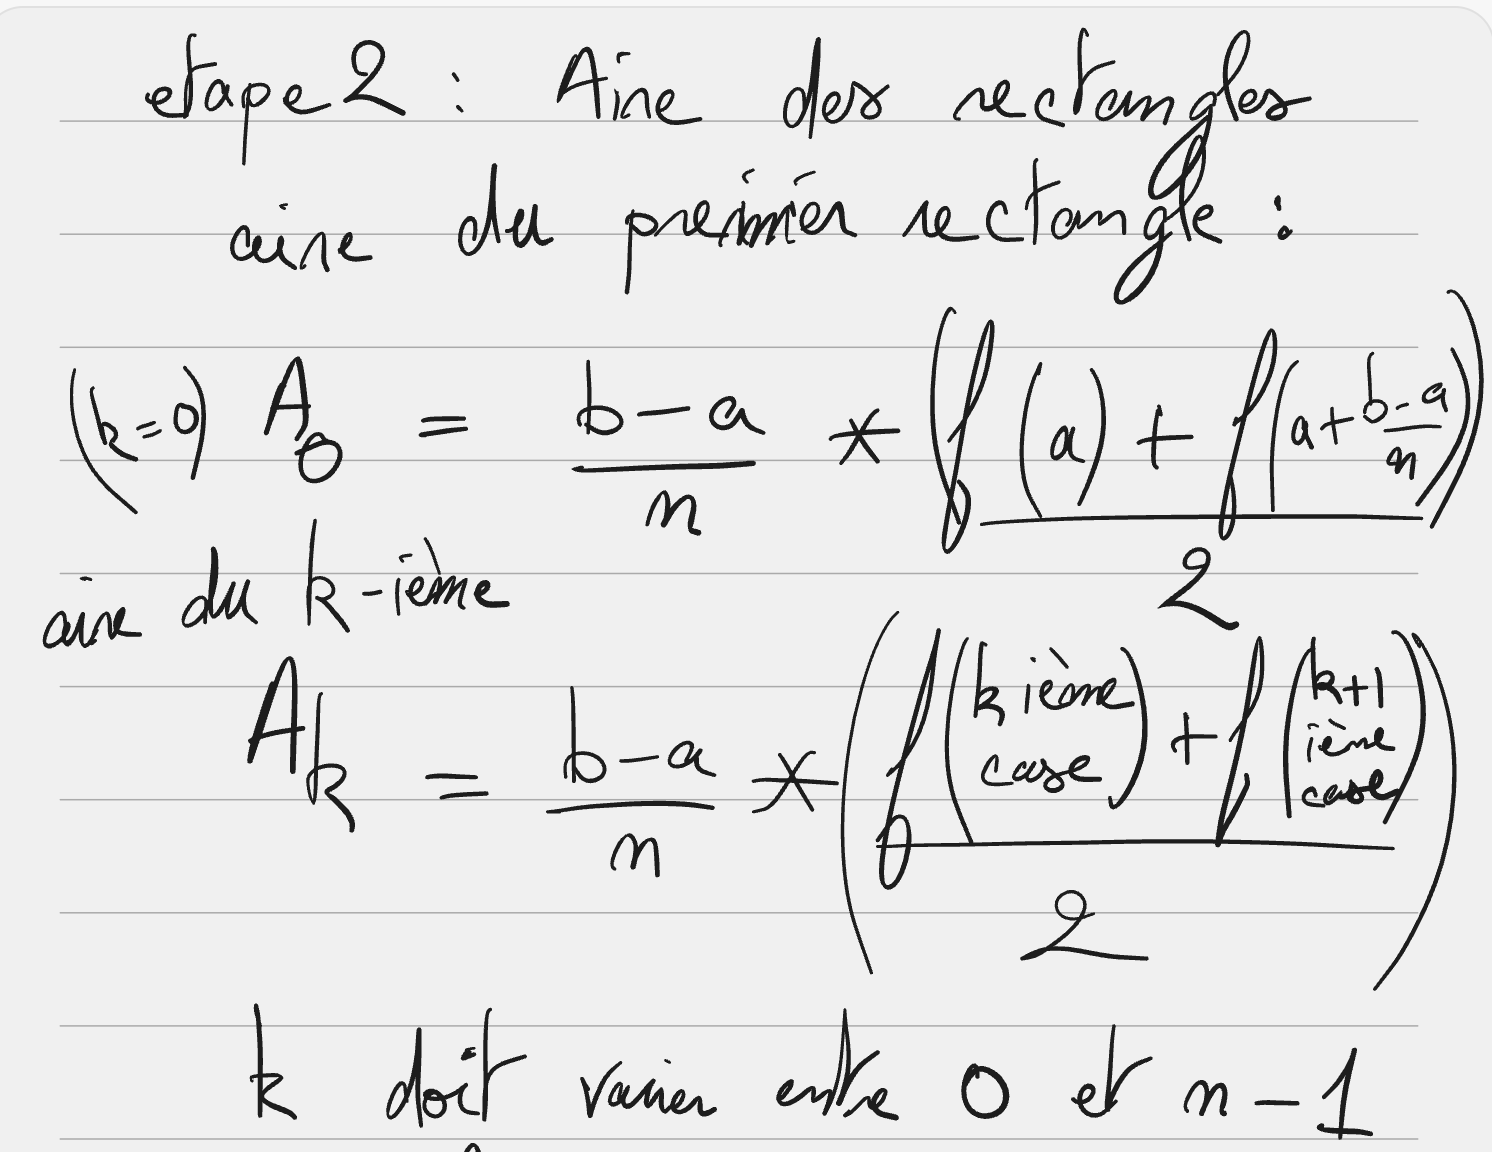 etape 2 : Aire des rectangles
aire du premier rectangle :
(k=0) A₀ = (b-a)/n * (f(a) + f(a + (b-a)/n))/2
aire du k-ième
Aₖ = (b-a)/n * (f(k ième case) + f(k+1 ième case))/2
k doit varier entre 0 et n-1